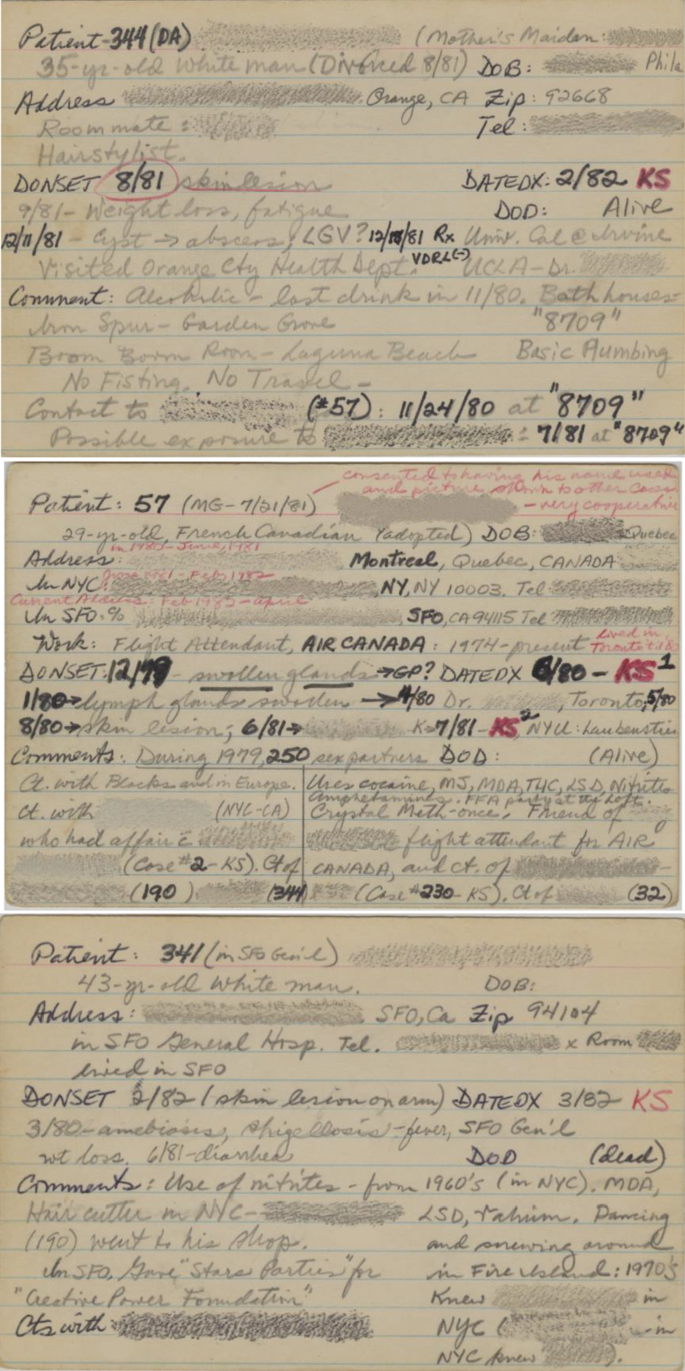 Patient-344 (DA) (Mother's Maiden:
35-yr-old White man (Divorced 8/81) DOB: Phila
Address Orange, CA Zip: 92668
Roommate: Tel:
Hairstylist.
DONSET 8/81 skin lesion DATEDX: 2/82 KS
9/81- Weight loss, fatigue DOD: Alive
12/11/81 - Cyst → abscess, LGV? 12/18/81 Rx Univ. Cal @ Irvine
Visited Orange Cty Health Dept. VDRL(-) UCLA-Dr.
Comment: Alcoholic - last drink in 11/80. Bathhouses-
Iron Spur - Garden Grove "8709"
Boom Boom Room - Laguna Beach Basic Plumbing
No Fisting. No Travel -
Contact to (#57): 11/24/80 at "8709"
Possible exposure to ± 7/81 at "8709"
consented to having his name used
and picture shown to other Cases
- very cooperative
Patient: 57 (MG-7/21/81)
29-yr-old, French Canadian (adopted) DOB: Quebec
Address: Montreal, Quebec, CANADA
In NYC: NY, NY 10003. Tel
Current Address: Feb 1982 - April
In SFO: % SFO, CA 94115 Tel
Work: Flight Attendant, AIR CANADA: 1974-present lived in
DONSET: 12/79 - swollen glands → GP? DATEDX 6/80 - KS 1
1/80 → lymph glands swollen → 4/80 Dr. , Toronto, 5/80
8/80 → skin lision; 6/81 → 7/81 - KS 2 NYU:
Comments: During 1979, 250 sex partners DOD: (Alive)
Ct. with Blacks and in Europe.
Ct. with (NYC-CA)
who had affair c̄
(Case #2-KS). Ct of
(190) (344)
Uses cocaine, MJ, MDA, THC, LSD, Nitrites
Amphetamines. FFA party at the Loft.
Crystal Meth-once. Friend of
flight attendant for AIR
CANADA, and ct. of
(Case #230-KS). Ct of (32)
Patient: 341 (in SFO Gen'l)
43-yr-old White man. DOB:
Address: SFO, Ca Zip 94104
in SFO General Hosp. Tel. x Room
lived in SFO
DONSET 2/82 (skin lesion on arm) DATEDX 3/82 KS
3/80-amebiasis, shigellosis-fever, SFO Gen'l
wt loss. 6/81-diarrhea DOD (dead)
Comments: Use of nitrites - from 1960's (in NYC). MDA,
Hair cutter in NYC- LSD, Valium. Dancing
(190) went to his shop. and screwing around
In SFO. Gave "Stars Parties" for in Fire Island: 1970's
"Creative Power Foundation" Knew in
Cts with: NYC ( in
NYC knew